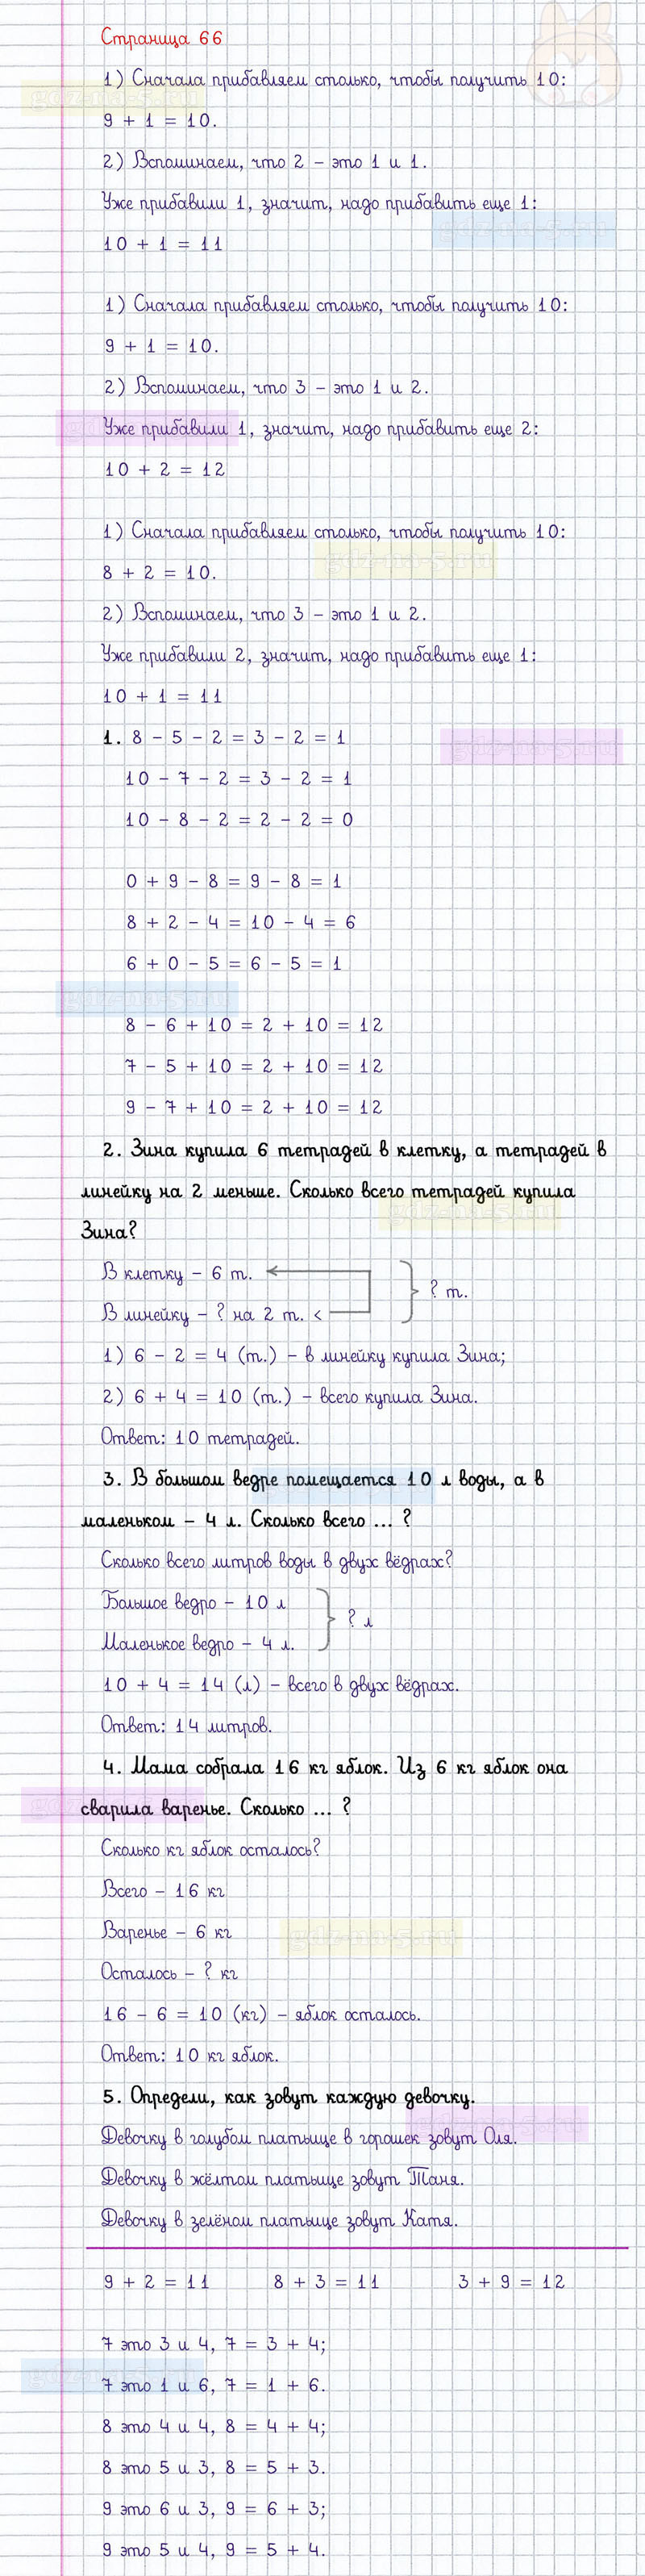 Страница 66
1) Сначала прибавляем столько, чтобы получить 10:
gdz-na-5.ru
9 + 1 = 10.
2) Вспоминаем, что 2 – это 1 и 1.
Уже прибавили 1, значит, надо прибавить еще 1:
gdz-na-5.ru
10 + 1 = 11
1) Сначала прибавляем столько, чтобы получить 10:
9 + 1 = 10.
2) Вспоминаем, что 3 – это 1 и 2.
Уже прибавили 1, значит, надо прибавить еще 2:
10 + 2 = 12
1) Сначала прибавляем столько, чтобы получить 10:
gdz-na-5.ru
8 + 2 = 10.
2) Вспоминаем, что 3 – это 1 и 2.
Уже прибавили 2, значит, надо прибавить еще 1:
10 + 1 = 11
1. 8 – 5 – 2 = 3 – 2 = 1
gdz-na-5.ru
10 – 7 – 2 = 3 – 2 = 1
10 – 8 – 2 = 2 – 2 = 0
0 + 9 – 8 = 9 – 8 = 1
8 + 2 – 4 = 10 – 4 = 6
6 + 0 – 5 = 6 – 5 = 1
gdz-na-5.ru
8 – 6 + 10 = 2 + 10 = 12
7 – 5 + 10 = 2 + 10 = 12
9 – 7 + 10 = 2 + 10 = 12
2. Зина купила 6 тетрадей в клетку, а тетрадей в
линейку на 2 меньше. Сколько всего тетрадей купила
gdz-na-5.ru
Зина?
В клетку – 6 т.
? т.
В линейку – ? на 2 т. <
1) 6 – 2 = 4 (т.) – в линейку купила Зина;
2) 6 + 4 = 10 (т.) – всего купила Зина.
Ответ: 10 тетрадей.
3. В большом ведре помещается 10 л воды, а в
маленьком – 4 л. Сколько всего ... ?
Сколько всего литров воды в двух вёдрах?
Большое ведро – 10 л
? л
Маленькое ведро – 4 л.
10 + 4 = 14 (л) – всего в двух вёдрах.
Ответ: 14 литров.
4. Мама собрала 16 кг яблок. Из 6 кг яблок она
сварила варенье. Сколько ... ?
Сколько кг яблок осталось?
Всего – 16 кг
Варенье – 6 кг
gdz-na-5.ru
Осталось – ? кг
16 – 6 = 10 (кг) – яблок осталось.
Ответ: 10 кг яблок.
5. Определи, как зовут каждую девочку.
Девочку в голубом платьице в горошек зовут Оля.
Девочку в жёлтом платьице зовут Таня.
Девочку в зелёном платьице зовут Катя.
9 + 2 = 11 8 + 3 = 11 3 + 9 = 12
7 это 3 и 4, 7 = 3 + 4;
7 это 1 и 6, 7 = 1 + 6.
8 это 4 и 4, 8 = 4 + 4;
8 это 5 и 3, 8 = 5 + 3.
9 это 6 и 3, 9 = 6 + 3;
9 это 5 и 4, 9 = 5 + 4.